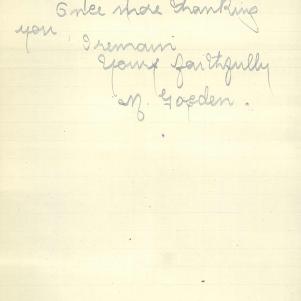 Once more thanking
you, I remain
Yours faithfully
M. Gogden.